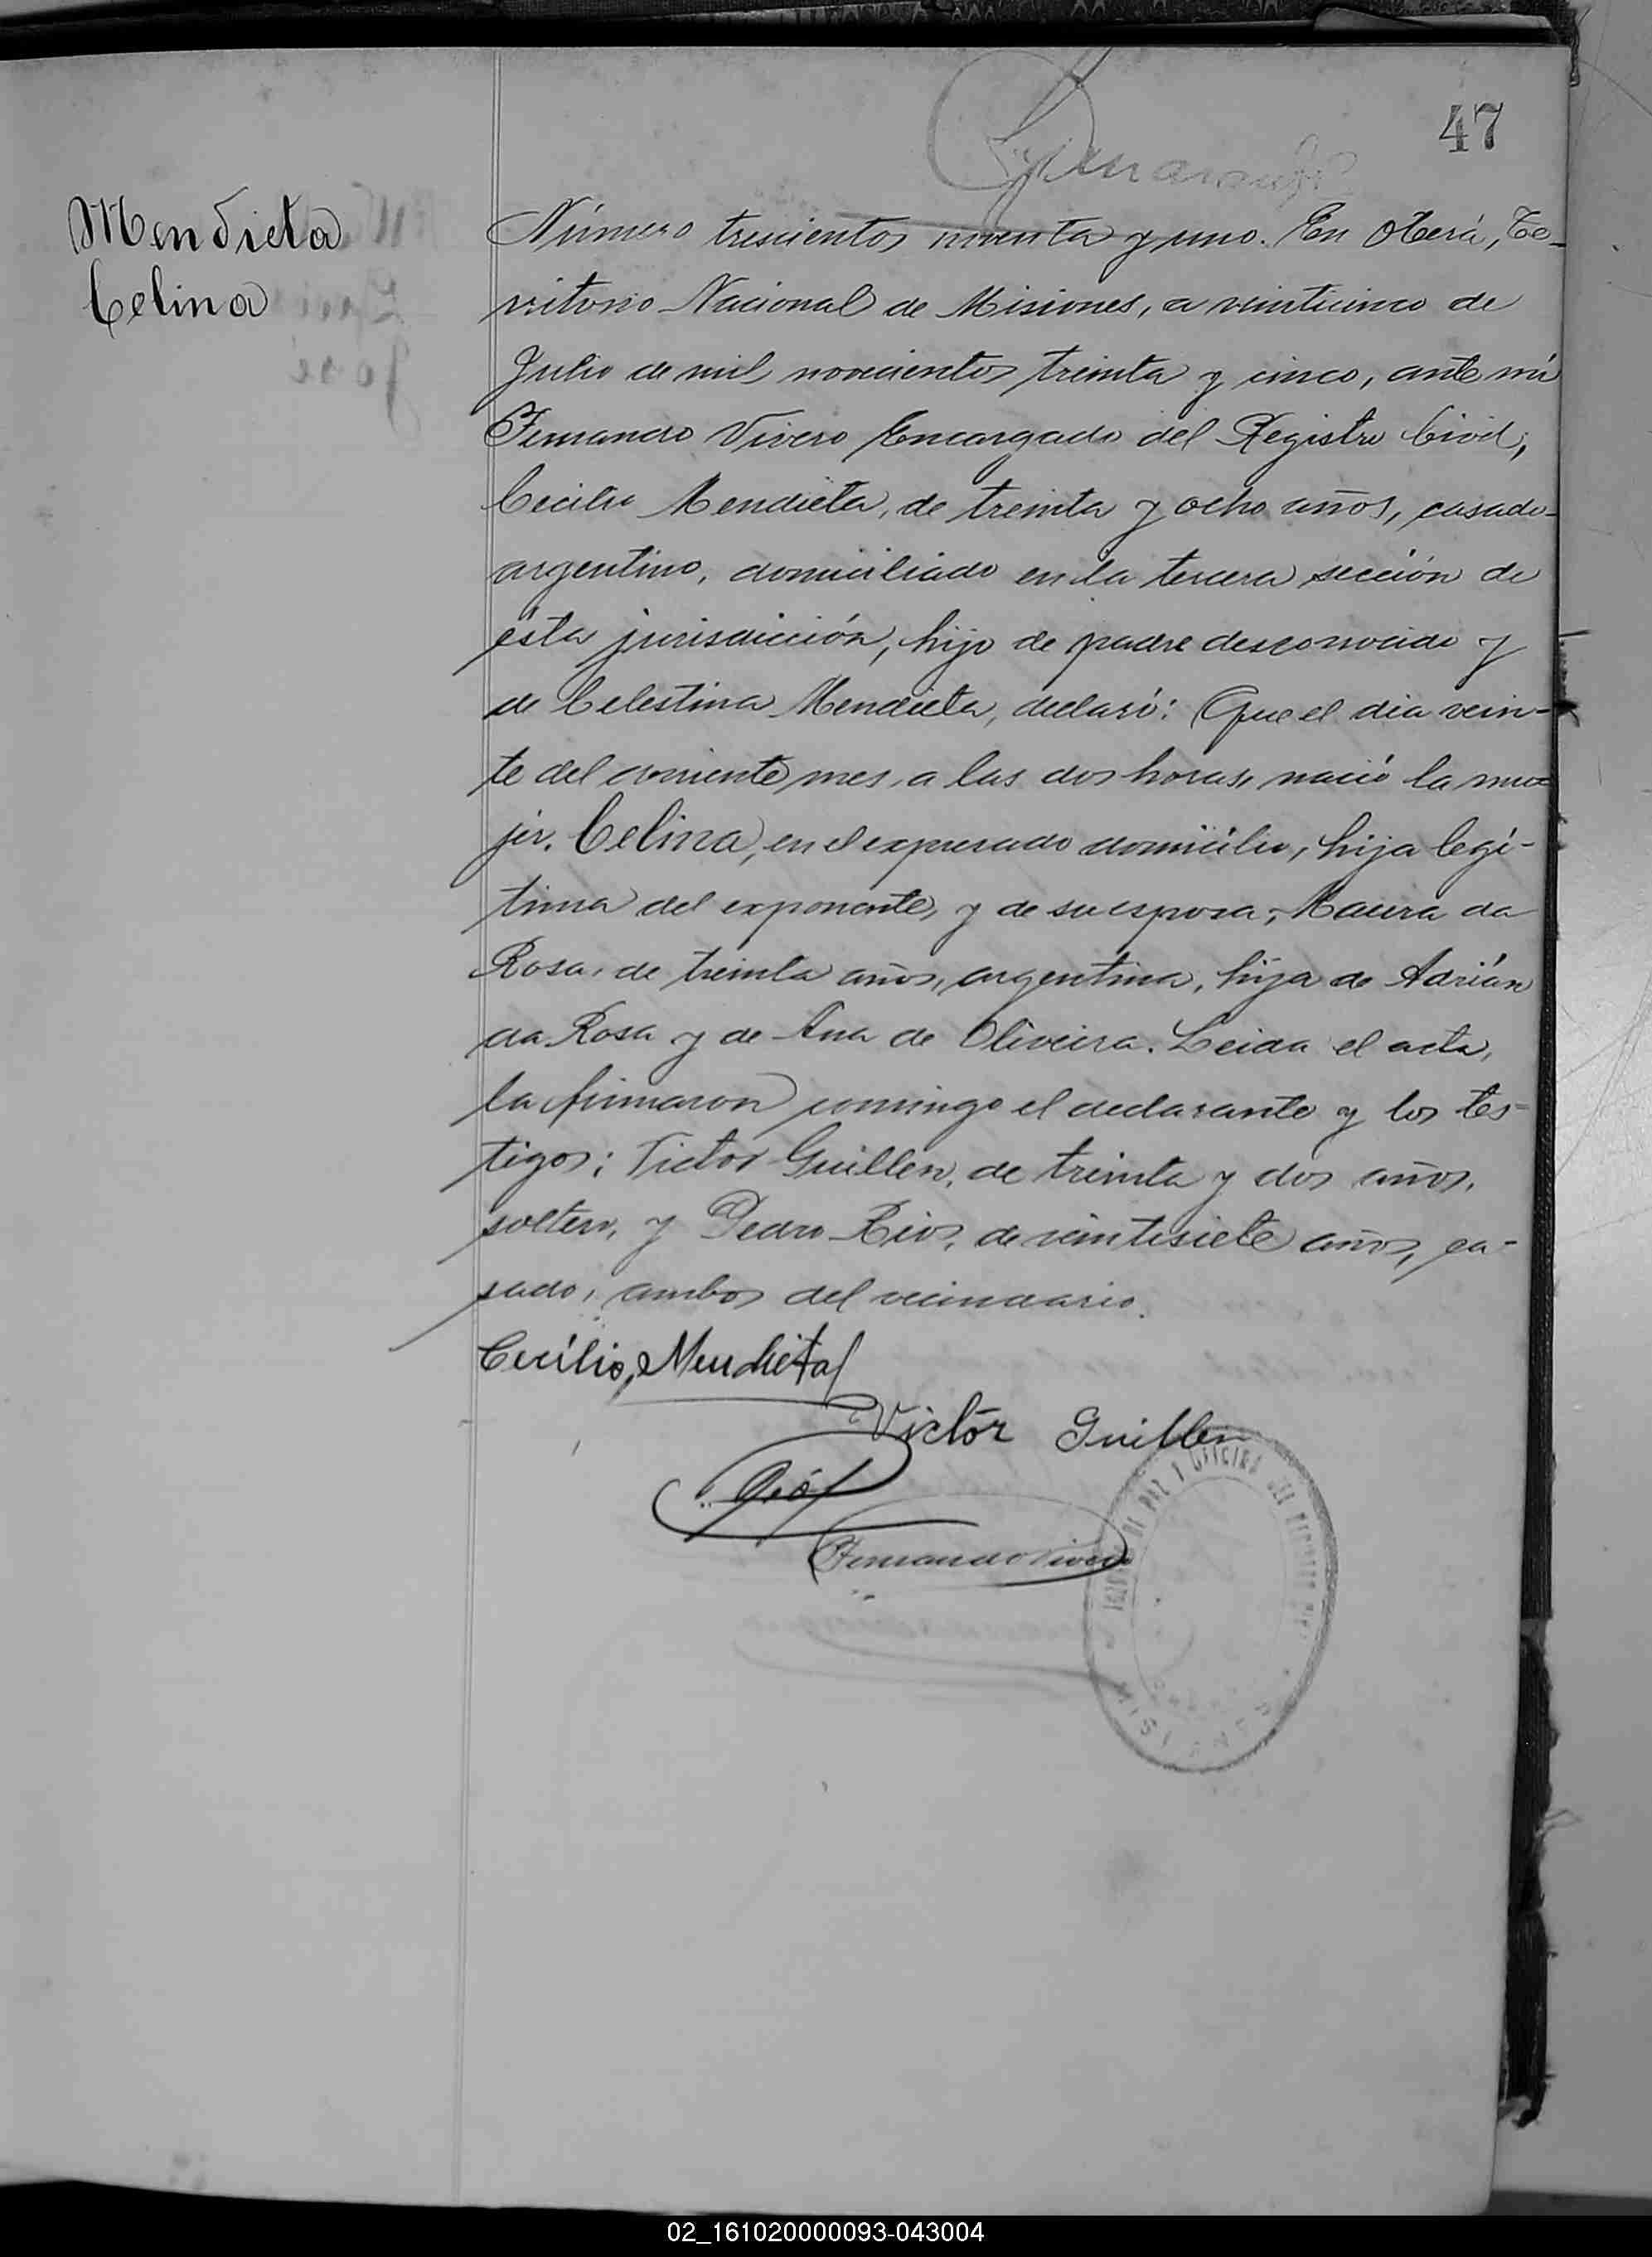 47
Mendieta
Celina
Número trescientos noventa y uno. En Oberá, Te-
rritorio Nacional de Misiones, a veinticinco de
Julio de mil novecientos treinta y cinco, ante mí
Fernando Vivero Encargado del Registro Civil,
Cecilio Mendieta, de treinta y ocho años, casado
argentino, domiciliado en la tercera sección de
ésta jurisdicción, hijo de padre desconocido y
de Celestina Mendieta, declaró: Que el dia vein-
te del corriente mes, a las dos horas, nació la mu-
jer, Celina, en el expresado domicilio, hija legí-
tima del exponente, y de su esposa, Maura da
Rosa, de treinta años, argentina, hija de Adrián
da Rosa y de Ana de Oliveira. Leida el acta,
la firmaron conmigo el declarante y los tes-
tigos: Victor Guillen, de treinta y dos años,
soltero, y Pedro Rios, de veintisiete años, ca-
sado, ambos del vecindario.
Cecílio, Mendieta
Victór Guillen
Fernando Vivero
DE PAZ Y OFICINA DEL REGISTRO
MISIONES
02_161020000093-043004